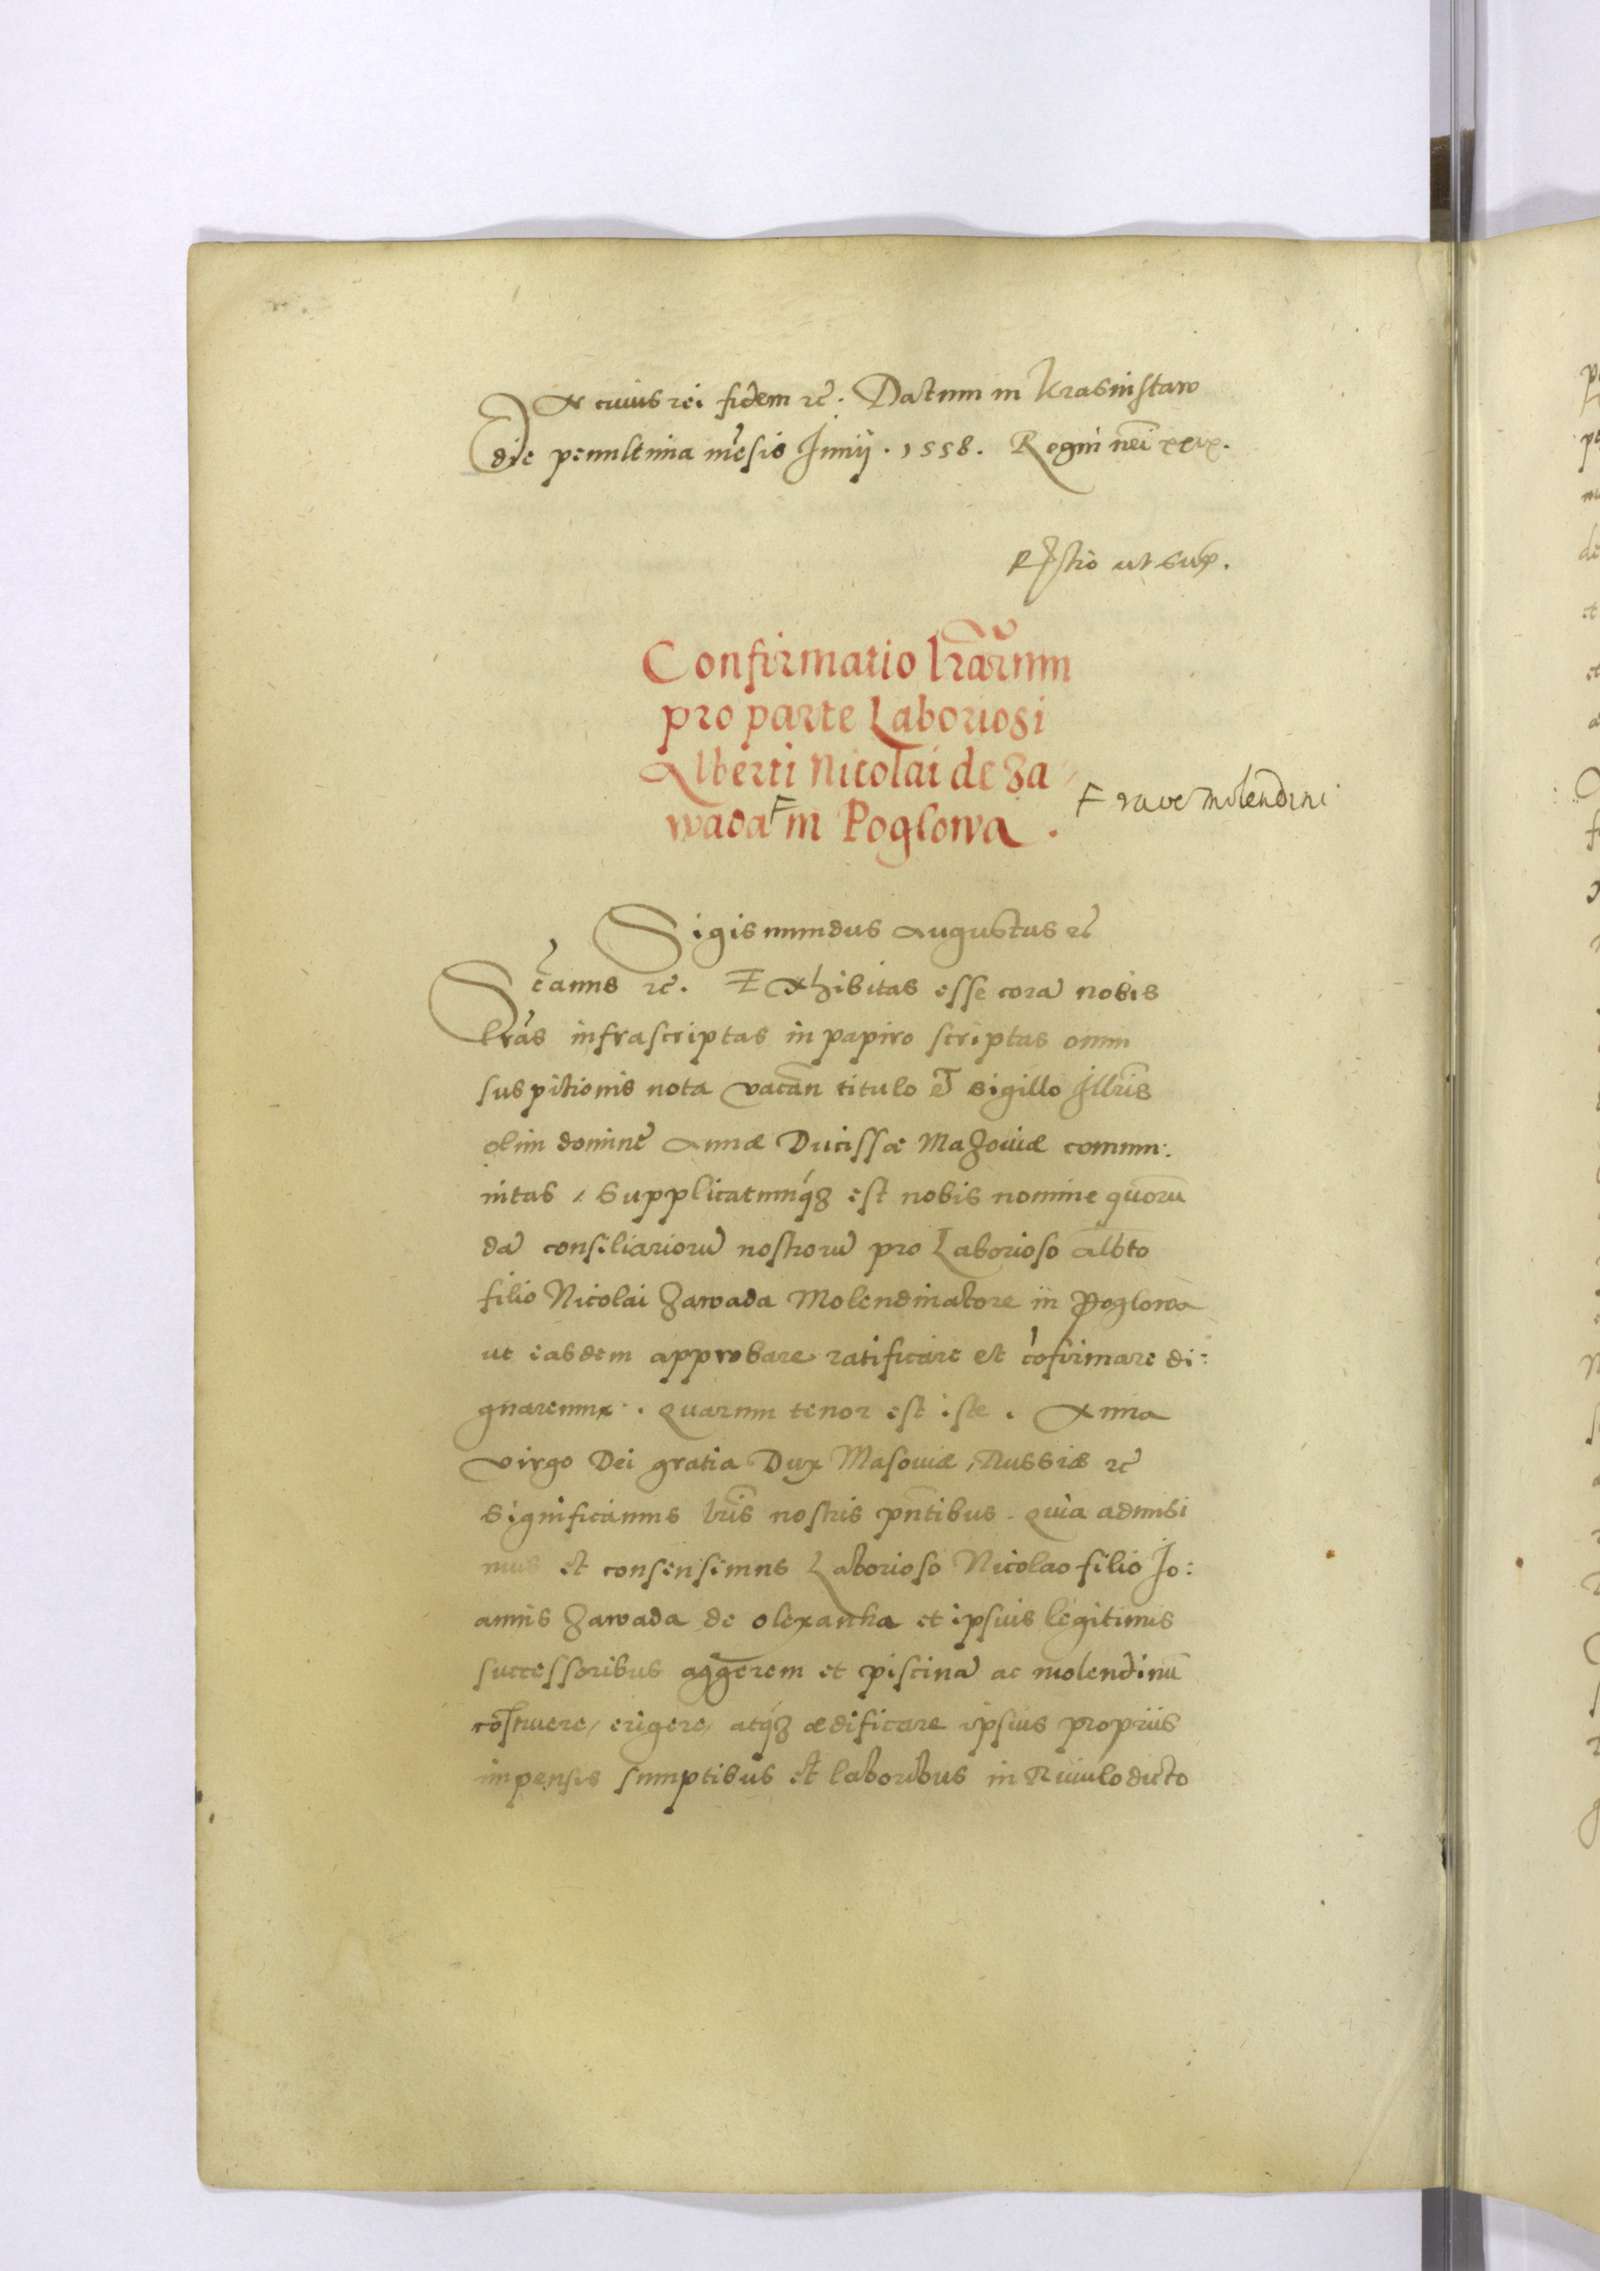 Ex cuius rei fidem etc̃. Datum in Krasnistaw
die penultima mẽsis Junij. 1558. Regni nr̃i xxix.
Rℓ̃atio ut sup̃.
Confirmatio lr̃arum
pro parte Laboriosi
Alberti Nicolai de Za
wada F in Poglowa.
F rãõe Molendini
Sigismundus Augustus etc̃
S tanus etc̃. Exhibitas esse corã nobis
lr̃as infrascriptas in papiro scriptas omni
suspitionis nota vacãn titulo et̃ sigillo Illr̃is
olim domine Annæ Ducissæ Mazouiæ commu:
nitas, Supplicatumq́ꝫ est nobis nomine quorũ
dã consiliariorũ nostrorũ pro Laborioso Alb̃to
filio Nicolai Zawada Molendinatore in Poglowa
ut easdem approbare ratificare et cõfirmare di:
gnaremur. Quarum tenor est iste. Anna
virgo Dei gratia Dux Masouiæ, Russiæ etc̃
Significamus lr̃is nostris pñtibus. Quia admisi
mus et consensimus Laborioso Nicolao filio Jo:
annis Zawada de Olexanka et ipsius legitimis
successoribus aggerem et piscinã ac molendinũ
cõstruere, erigere, atq́ꝫ ædificare ipsius propriis
impensis sumptibus et laboribus in Riuulo dicto